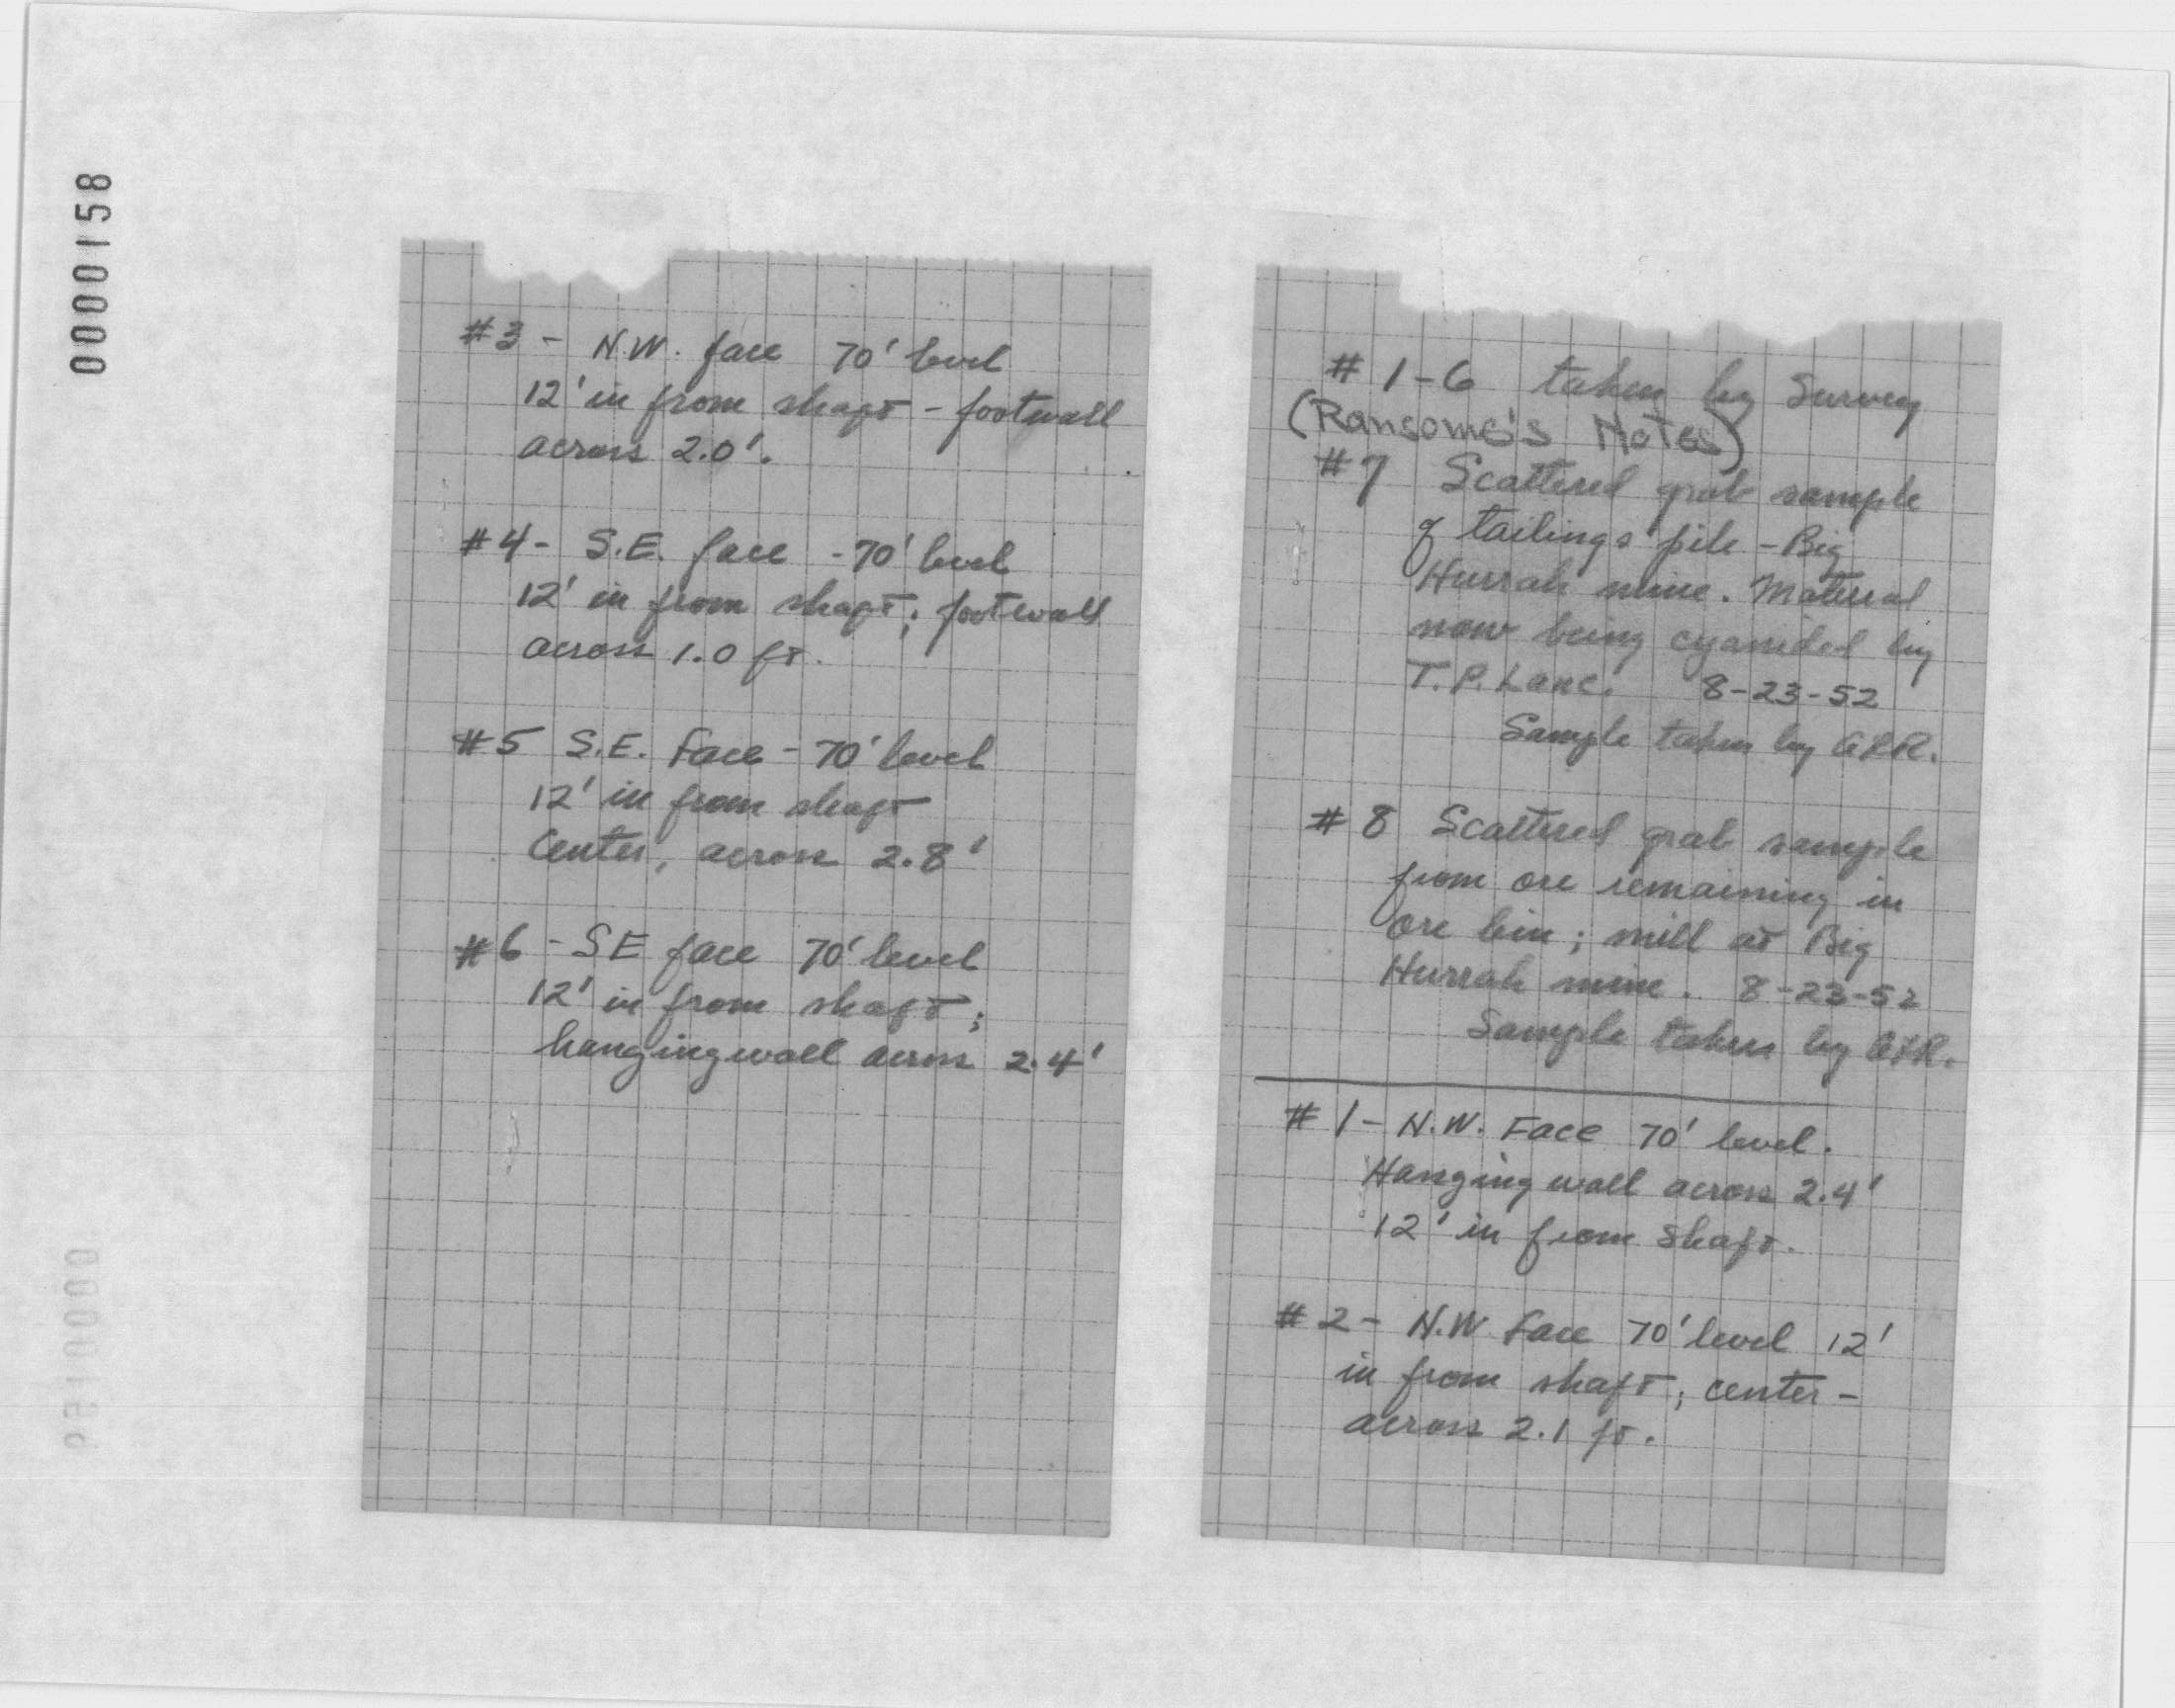 0000158
#3 - N.W. face 70' level
12' in from shaft - footwall
across 2.0'.
#4 - S.E. face - 70' level
12' in from shaft; footwall
across 1.0 ft.
#5 S.E. Face - 70' level
12' in from shaft
Center, across 2.8'
#6 - SE face 70' level
12' in from shaft;
hangingwall across 2.4'
# 1-6 taken by Survey
(Ransome's Notes)
#7 Scattered grab sample
of tailings pile - Big
Hurrah mine. Material
now being cyanided by
T.P. Lane. 8-23-52
Sample taken by
#8 Scattered grab sample
from ore remaining in
ore bin; mill at Big
Hurrah mine. 8-23-52
Sample taken by
#1 - N.W. Face 70' level.
Hanging wall across 2.4'
12' in from shaft.
#2 - N.W. Face 70' level 12'
in from shaft; center -
across 2.1 ft.